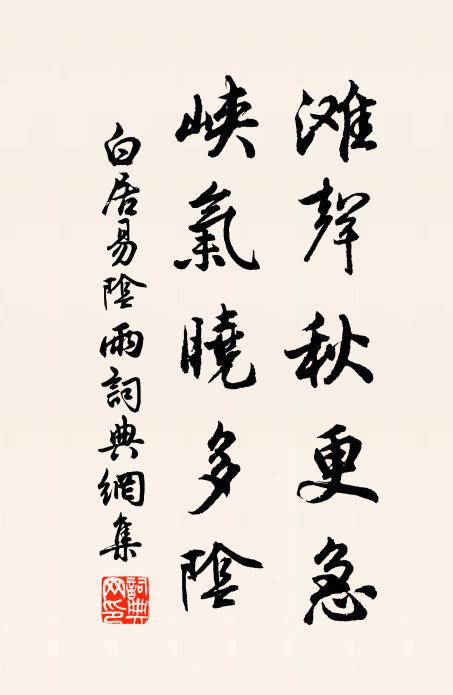 滩聲秋更急
峽氣曉多陰
白居易陰雨詞典網集
詞典网印